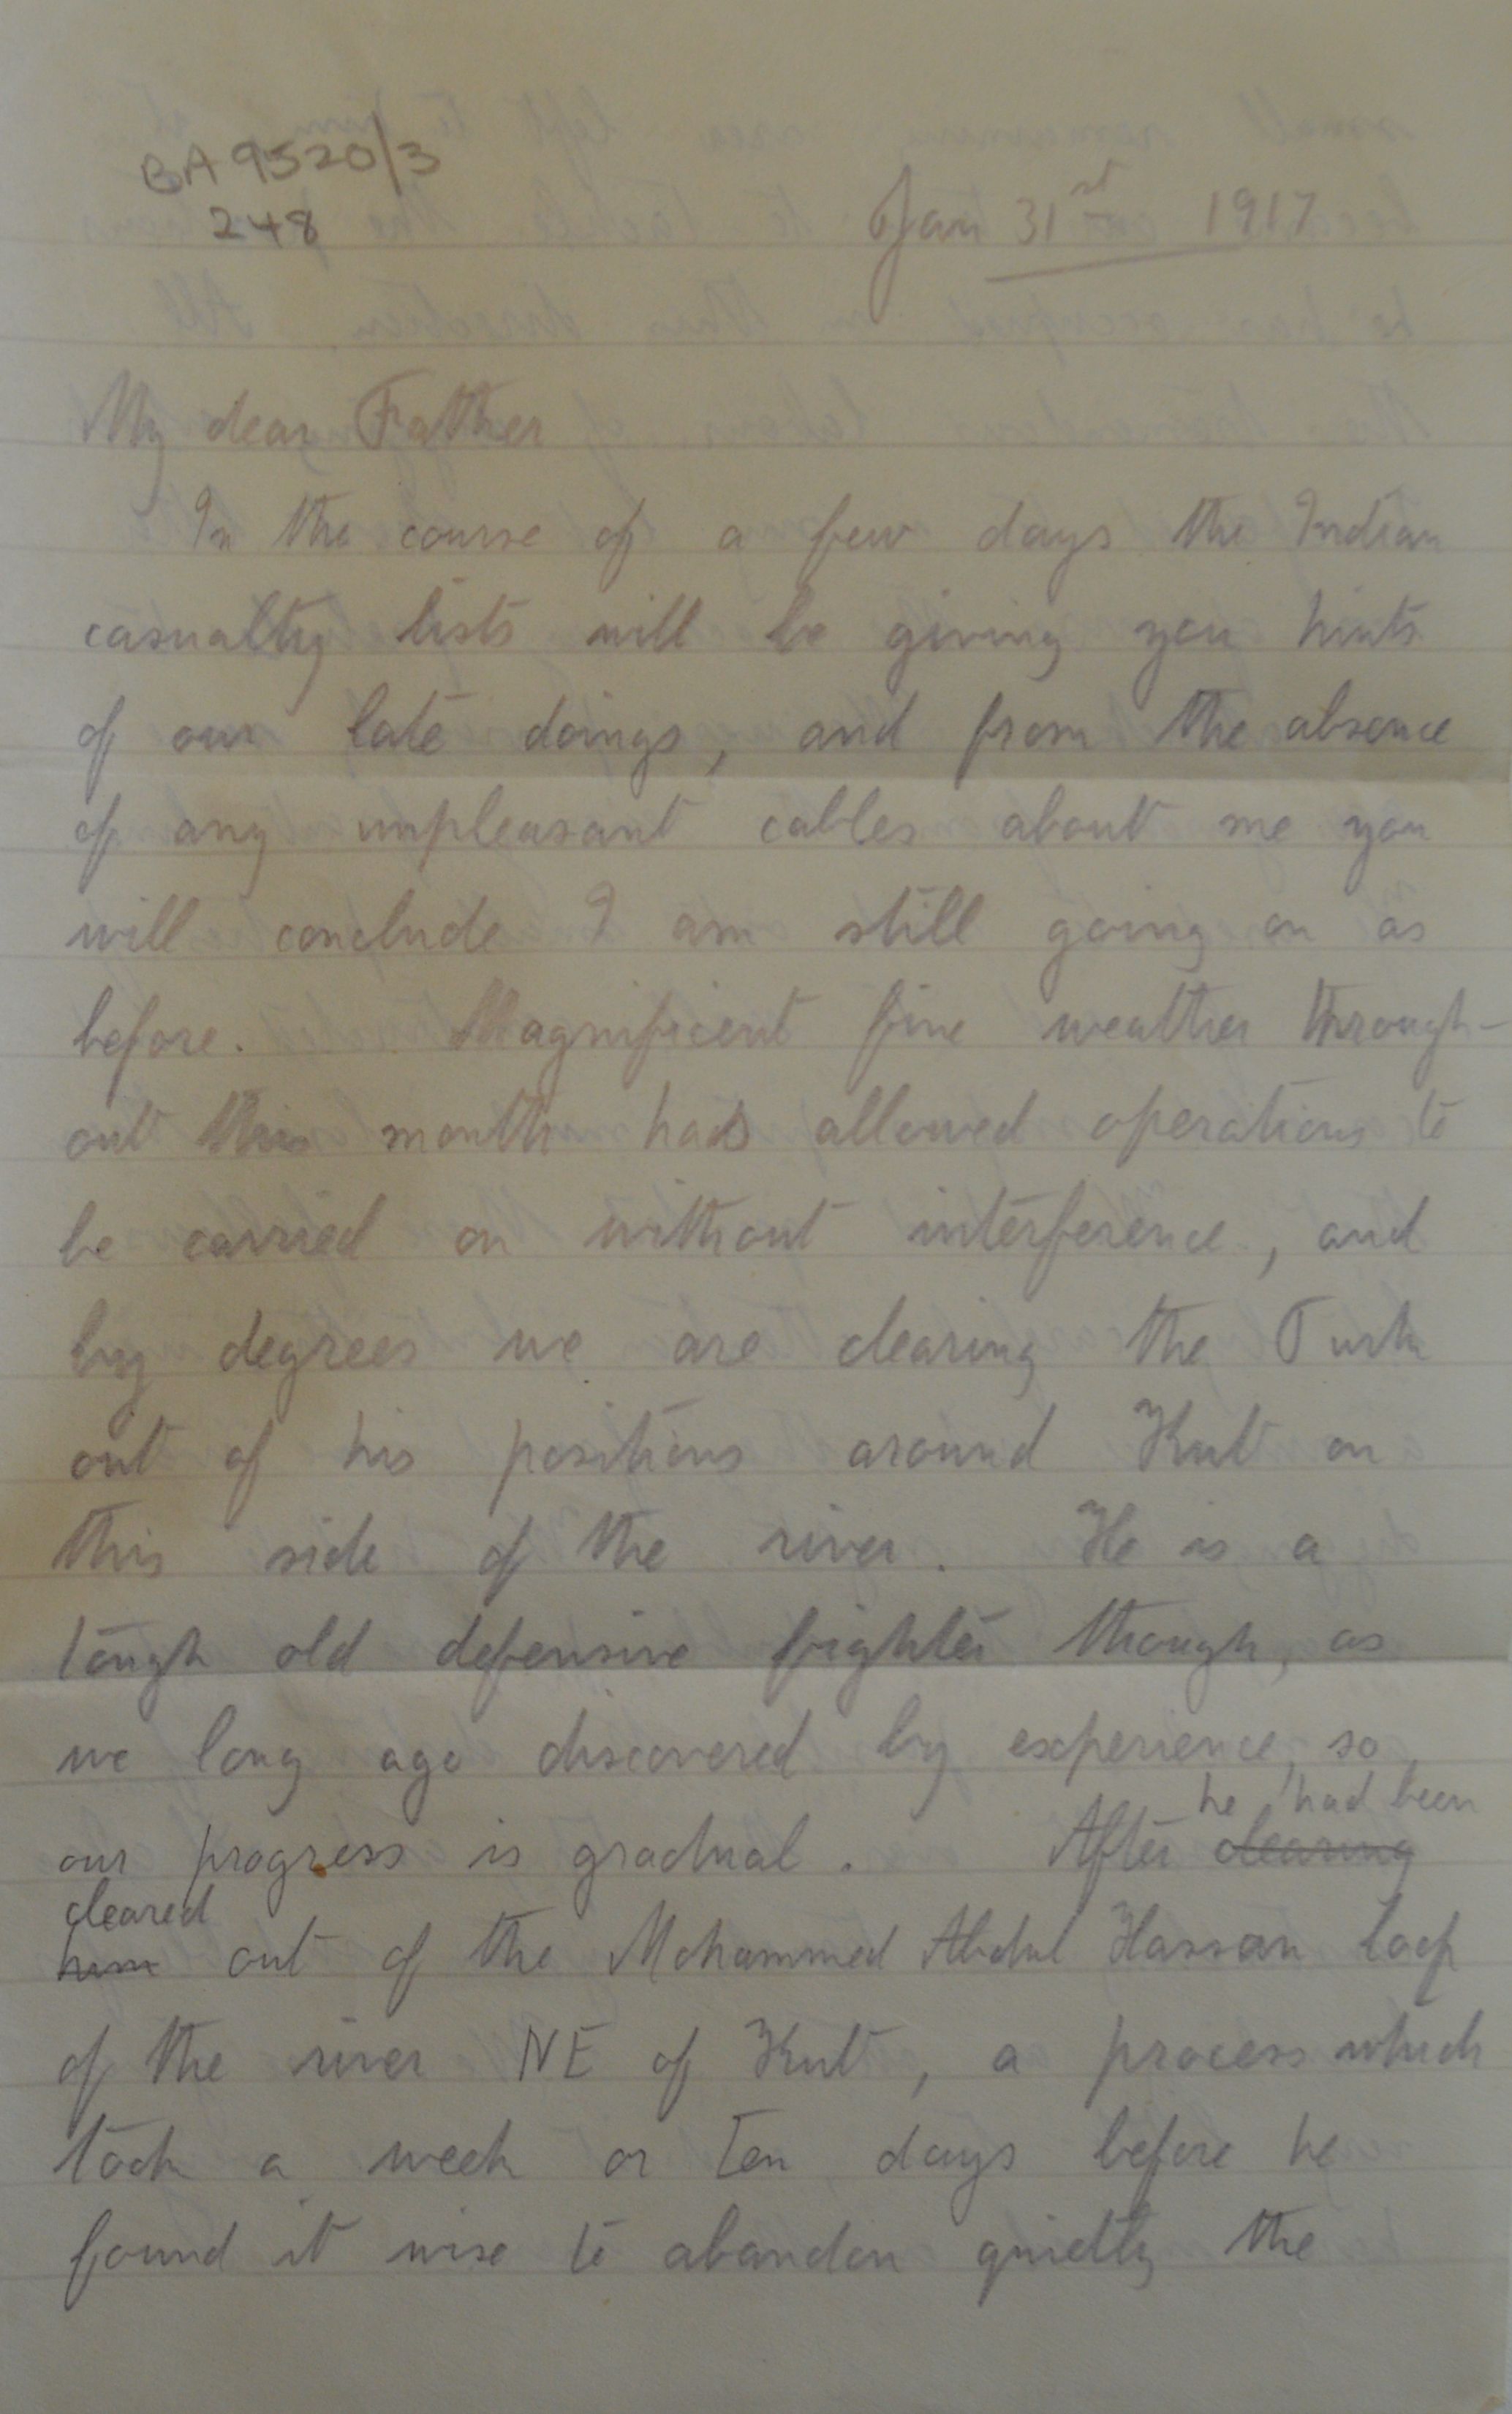 BA 9520/3
248
Jan 31st 1917
My dear Father
In the course of a few days the Indian
casualty lists will be giving you hints
of our late doings, and from the absence
of any unpleasant cables about me you
will conclude I am still going on as
before. Magnificent fine weather through-
out this month has allowed operations to
be carried on without interference, and
by degrees we are clearing the Turk
out of his positions around Kut on
this side of the river. He is a
tough old defensive fighter though, as
we long ago discovered by experience, so
he had been
our progress is gradual. After clearing
cleared
him out of the Mohammed Abdul Hassan loop
of the river NE of Kut, a process which
took a week or ten days before he
found it wise to abandon quietly the